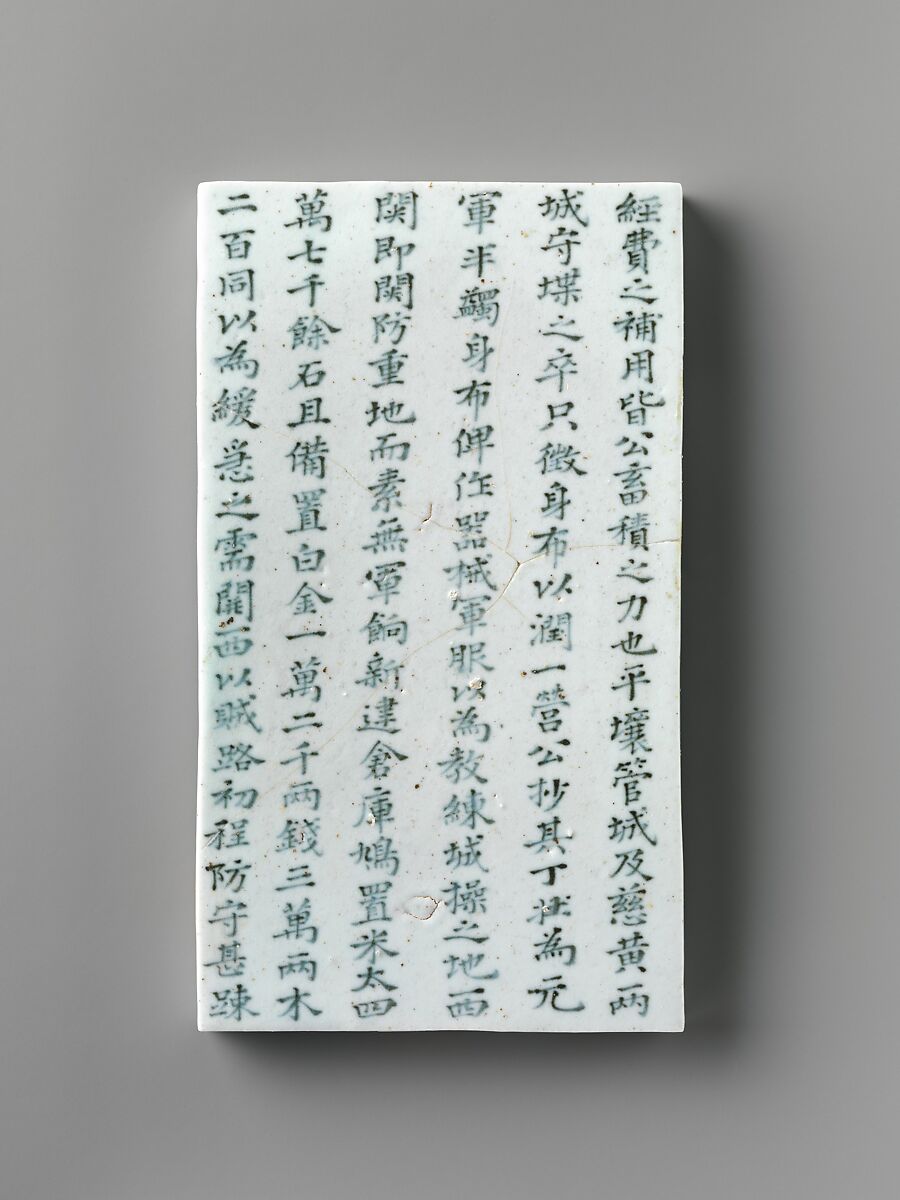 經費之補用皆公畜積之力也平壤管城及慈黃兩
城守堞之卒只徵身布以潤一營公抄其丁壯為元
軍半蠲身布俾作器械軍服以為教練城操之地西
関即関防重地而素無軍餉新建倉庫鳩置米太四
萬七千餘石且備置白金一萬二千兩錢三萬兩木
二百同以為緩急之需関西以賊路初程防守甚踈